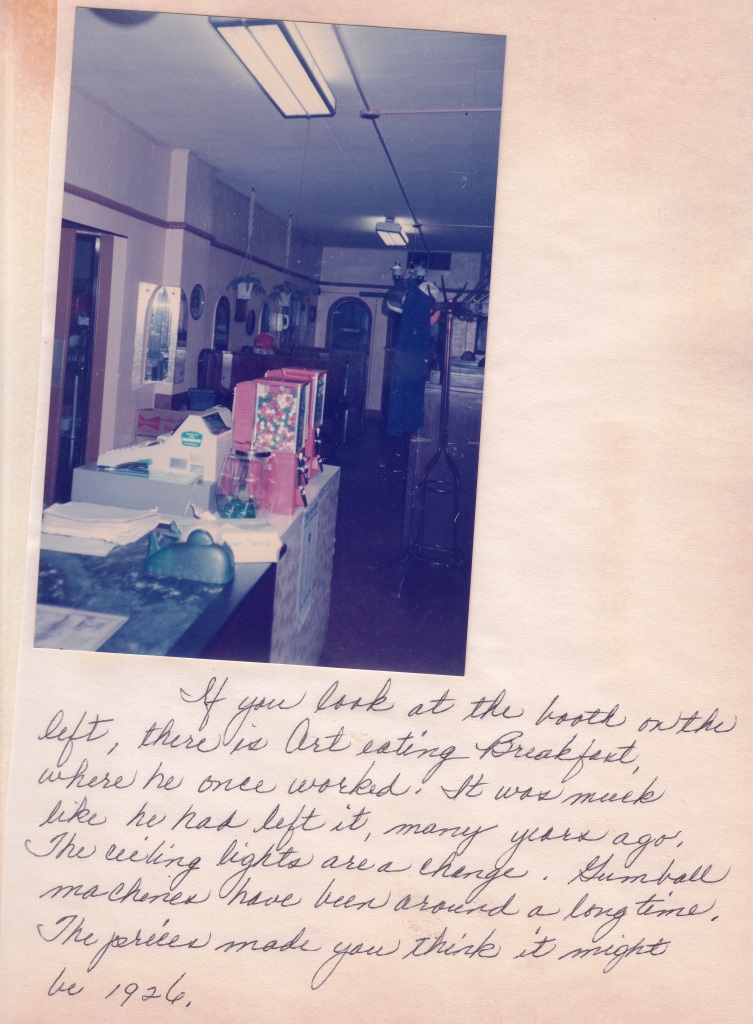 If you look at the booth on the
left, there is Art eating Breakfast,
where he once worked. It was much
like he had left it, many years ago.
The ceiling lights are a change. Gumball
machenes have been around a long time.
The prices made you think it might
be 1926.